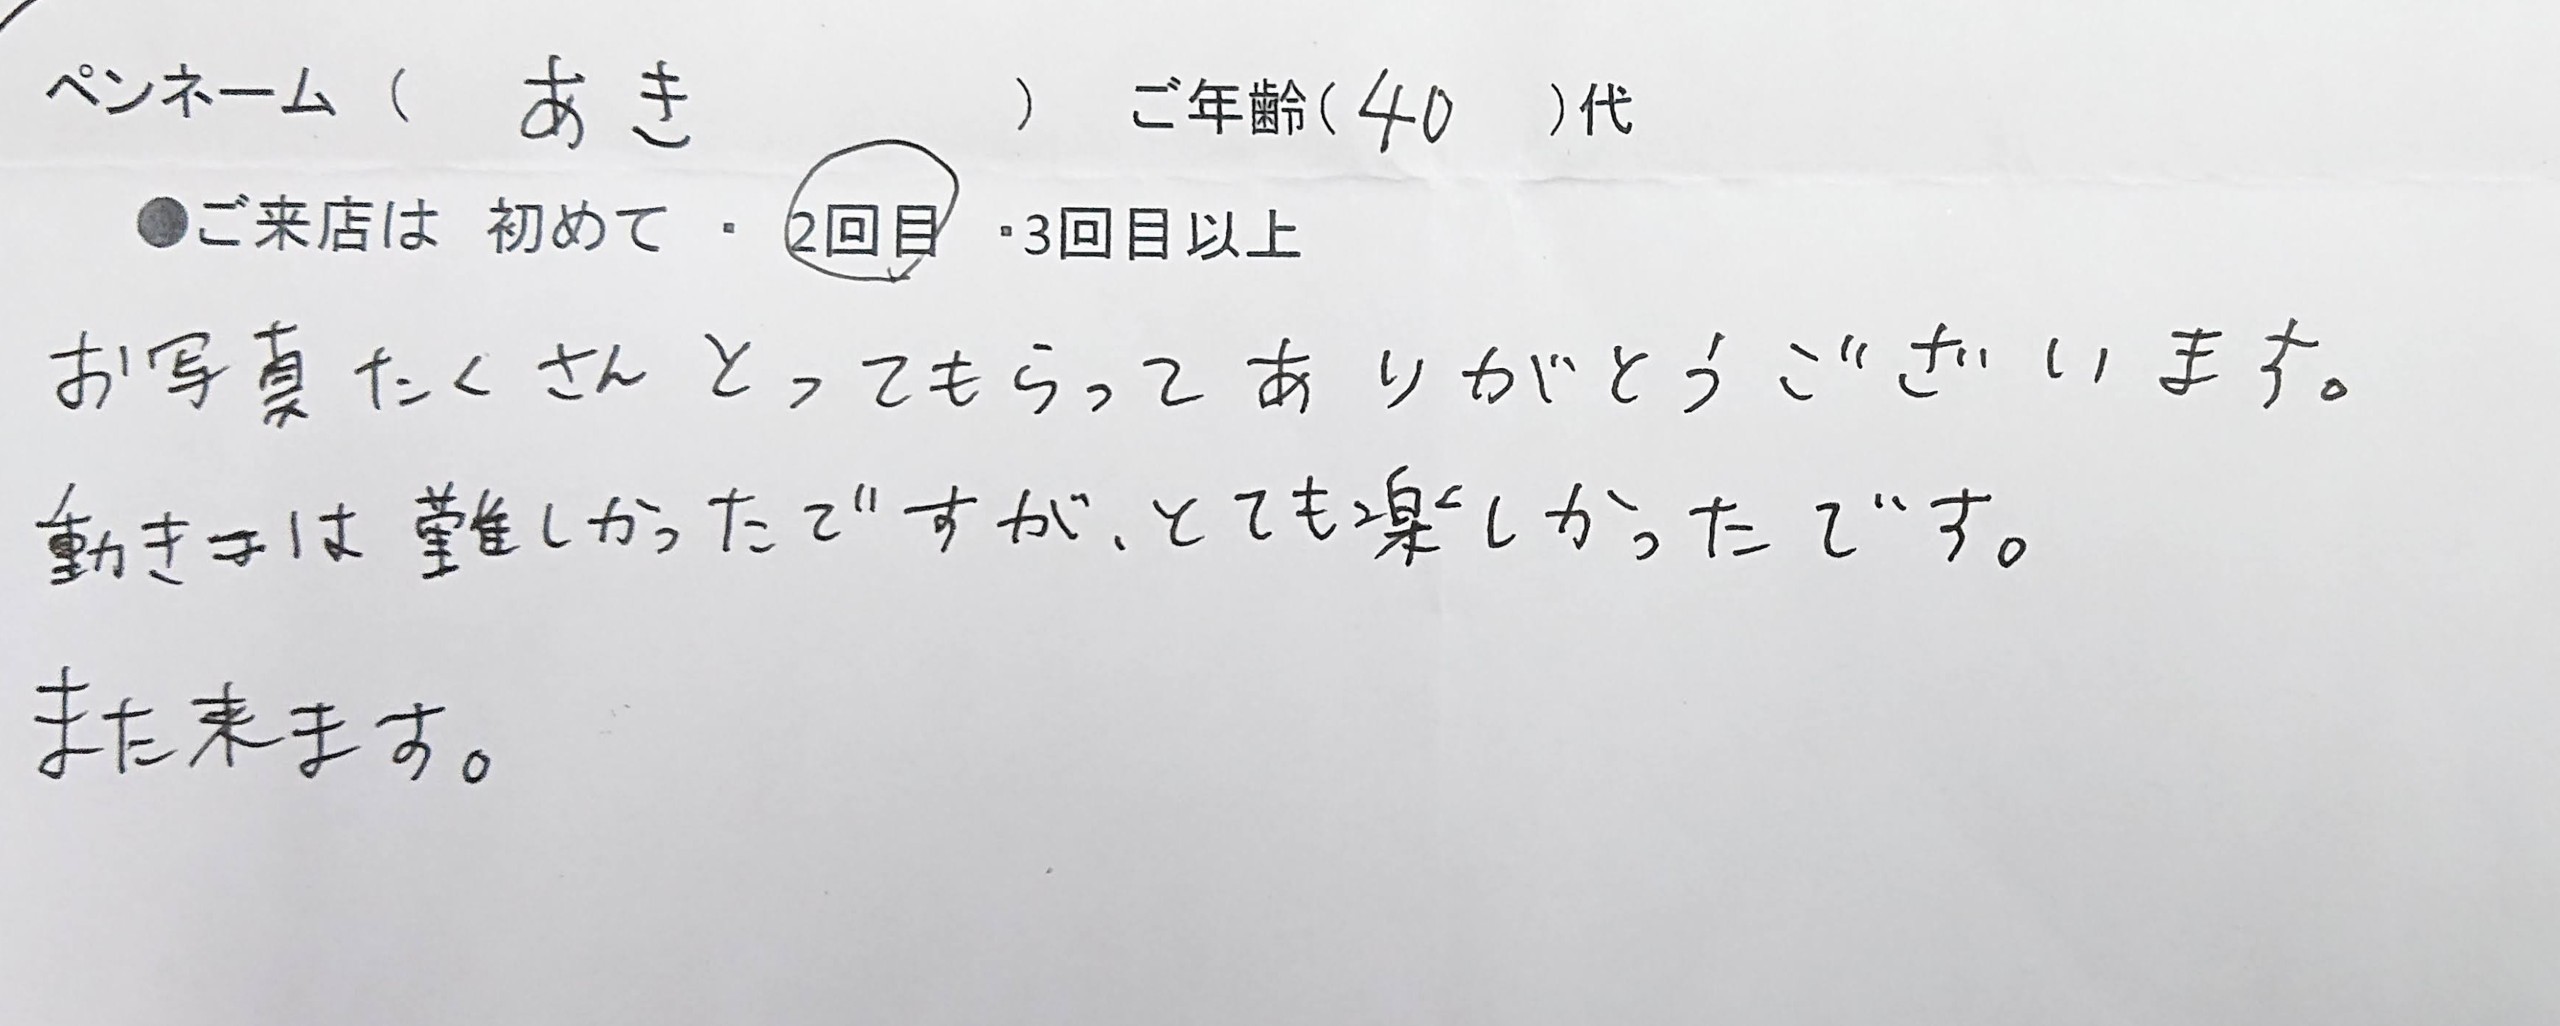 ペンネーム ( あき ) ご年齢 ( 40 ) 代
●ご来店は 初めて ・ 2回目 ・3回目以上
お写真たくさんとってもらってありがとうございます。
動きは難しかったですが、とても楽しかったです。
また来ます。